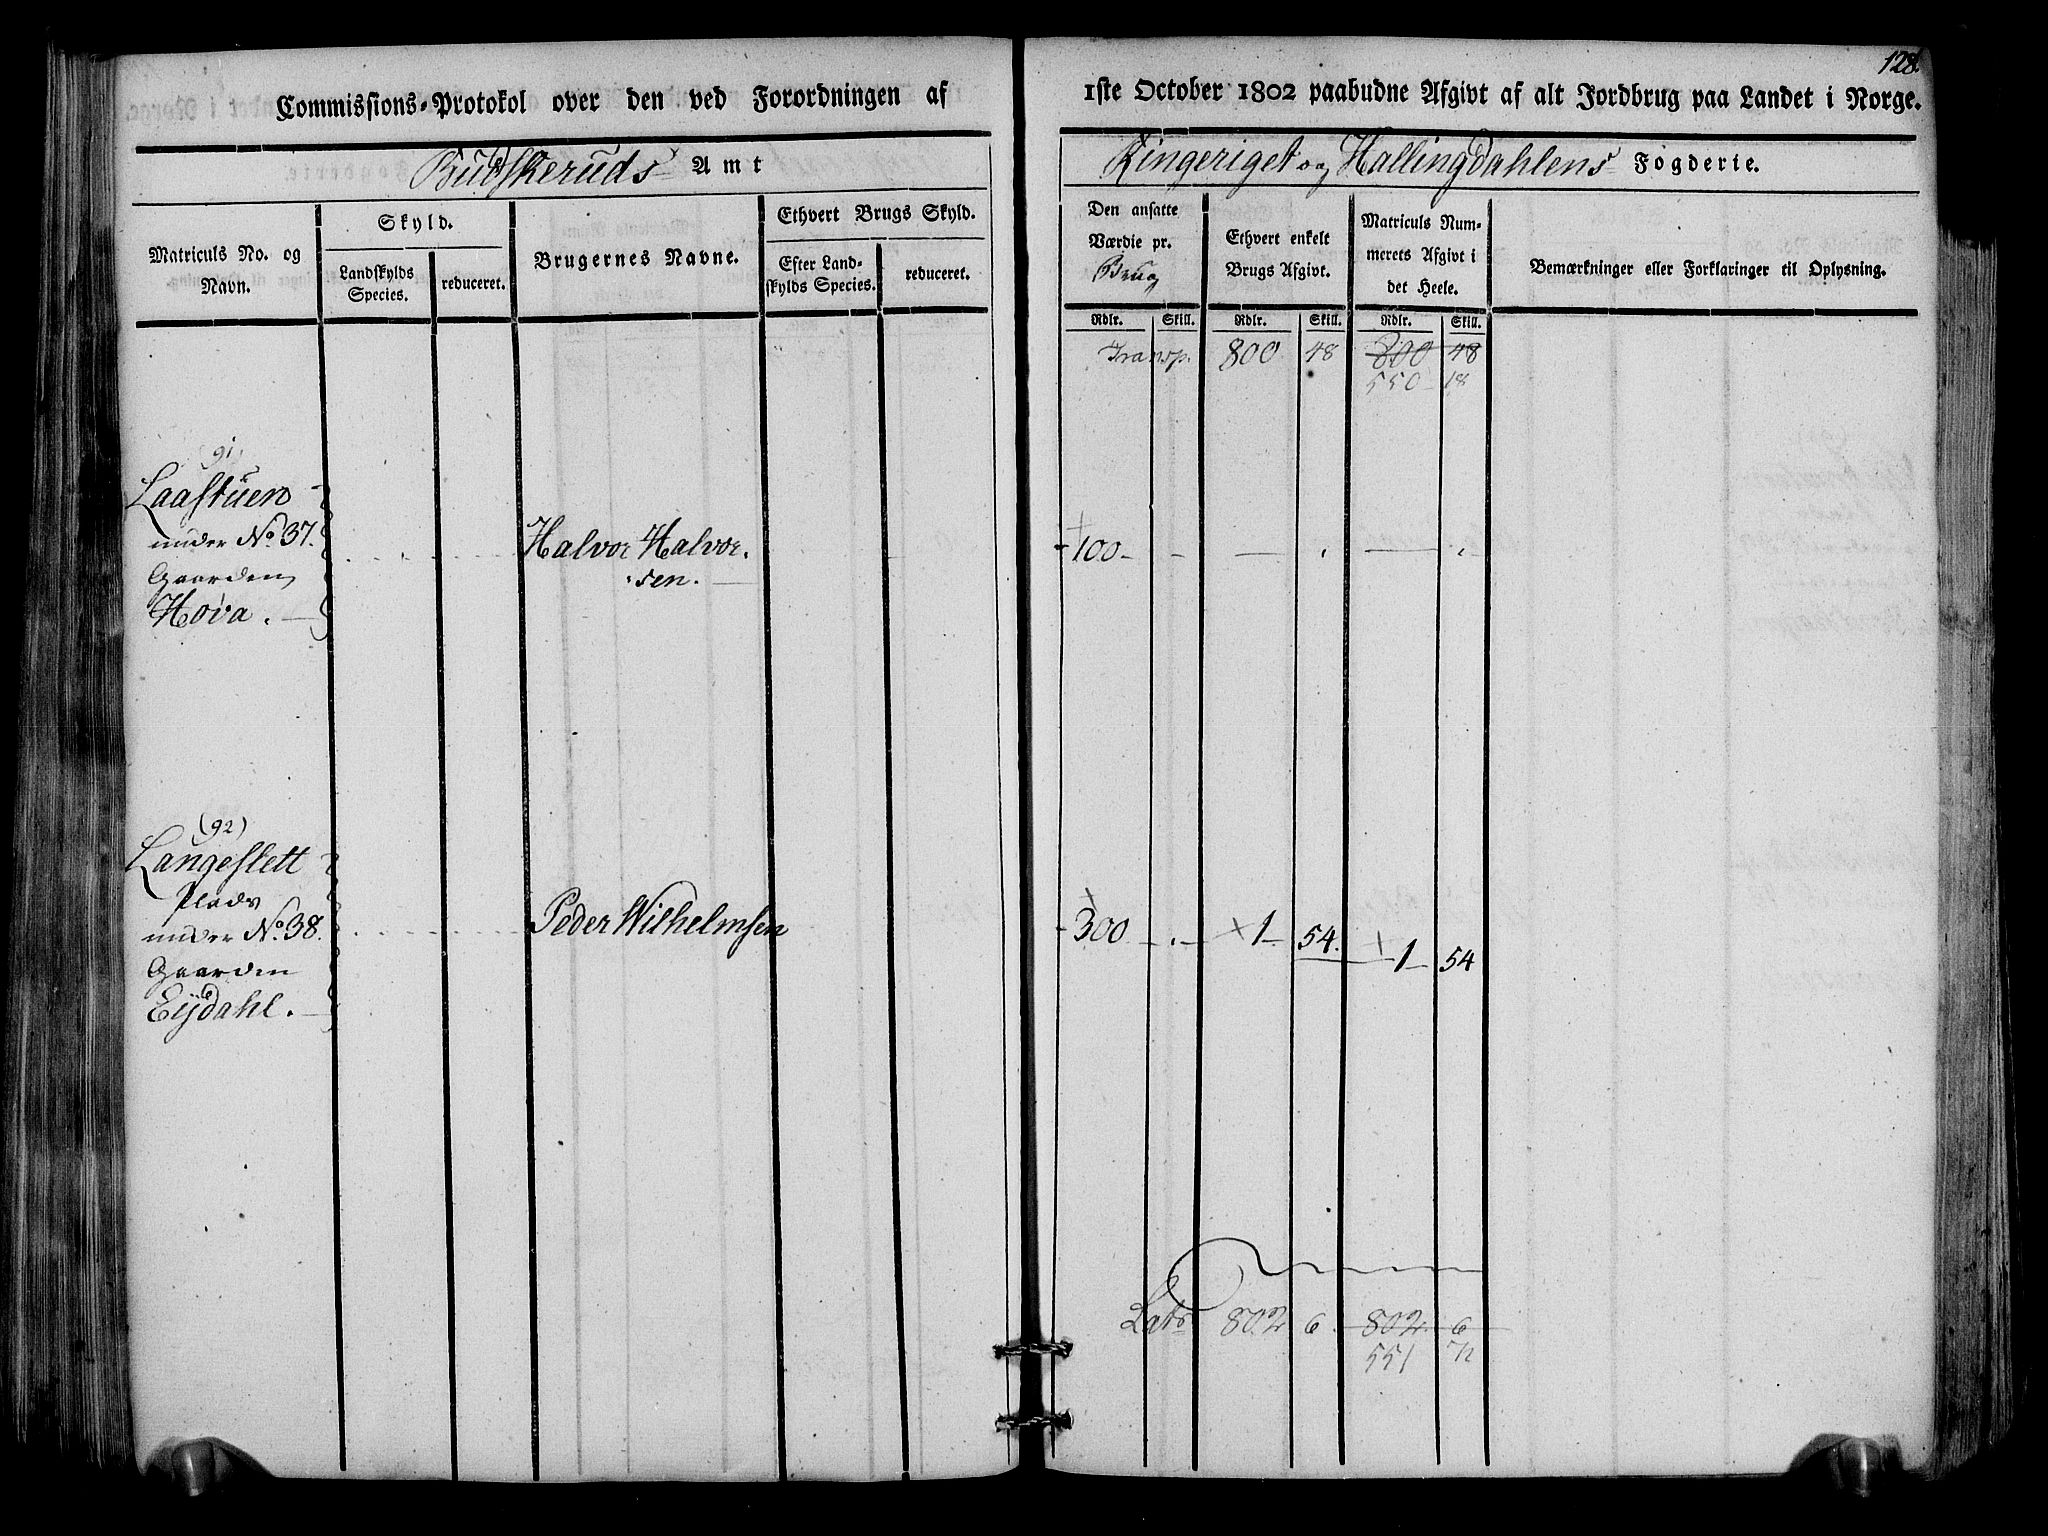 128.
Commissions-Protokol over den ved Forordningen af 1ste October 1802 paabudne Afgivt af alt Jordbrug paa Landet i Norge.
Budskeruds Amt
Ringeriget og Hallingdahlens Fogderie.
Matriculs No. og Navn.
Skyld.
Landskylds Species.
reduceret.
Brugernes Navne.
Ethvert Brugs Skyld.
Efter Landskylds Species.
reduceret.
Den ansatte Værdie pr. Brug
Ethvert enkelt Brugs Afgivt.
Matriculs Nummerets Afgivt i det Heele.
Bemærkninger eller Forklaringer til Oplysning.
Rdlr. Skill. Rdlr. Skill. Rdlr. Skill.
Transp. 800 48 800 48
550 18
(91)
Laastuen
under No. 37.
Gaarden
Hova.
Halvor Halvor-
sen.
100
(92)
Langeslett
Plads
under No. 38.
Gaarden
Eijdahl.
Peder Wilhelmsen
300 1 54. 1 54
Lats 802 6 802 6
551 72